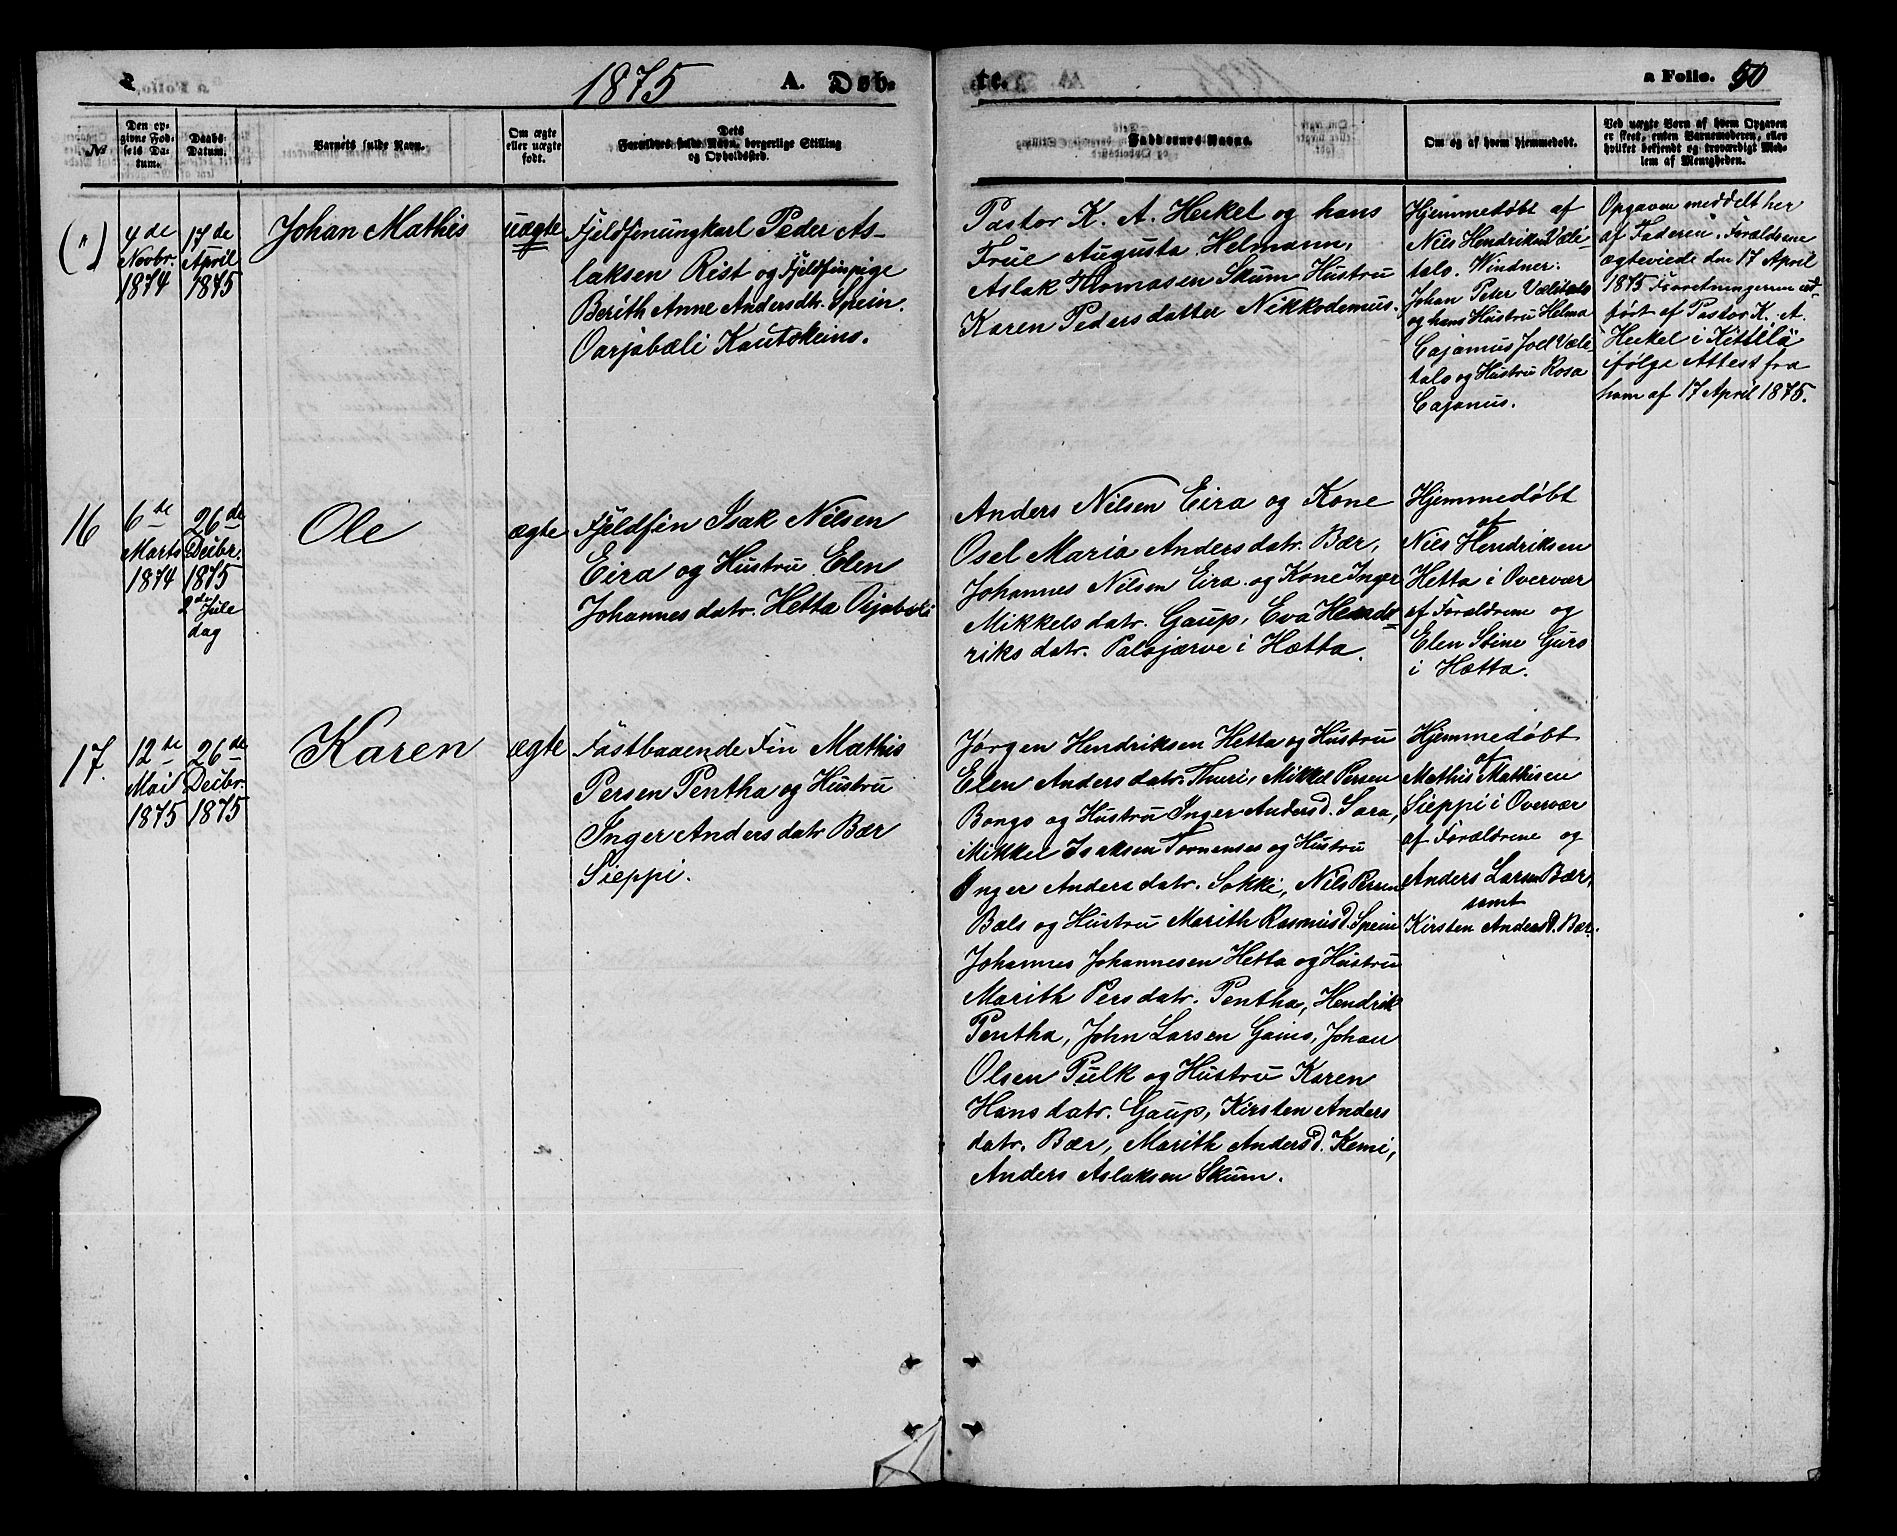 1875
A. Døb-
te.
a Folio. 50
№
Den op-
givne Fød-
sels Da-
tum.
Daabs-
Datum.
Barnets fulde Navn.
Om ægte
eller uægte
født.
Dets
Forældres fulde Navn, borgerlige Stilling
og Opholdssted.
Faddernes Navne.
Om og af hvem hjemmedøbt.
Ved uægte Børn af hvem Opgaven
er skeet, enten Barnemoderen, eller
hvilket bekjendt og troværdigt Med-
lem af Menigheden.
(")
4de
Novbr.
1874
17de
April
1875
Johan Mathis
uægte
Fjeldfinungkarl Peder As-
laksen Rist og Fjeldfinpige
Berith Anne Andersdtr. Spein.
Oarjabæli Kautokeino.
Pastor K. A. Heikel og hans
Frue Augusta Helmann,
Aslak Thomasen Skum Hustru
Karen Pedersdatter Nikkodemus.
Hjemmedøbt af
Nils Hendriksen Væli-
talo. Windner:
Johan Peter Vælitalo
og hans Hustru Helma
Cajanus Joel Væli-
talo og Hustru Rosa
Cajanus.
Opgaven meddelt her
af Faderen. Forældrene
ægteviede den 17 April
1875 Forretningerne ud-
ført af Pastor K. A.
Heikel i Kittilä
ifølge Attest fra
ham af 17 April 1875.
16
6de
Marts
1874
26de
Decbr.
1875
2den Jule
dag
Ole
ægte
Fjeldfin Isak Nilsen
Eira og Hustru Elen
Johannesdatr. Hetta Orjabæli
Anders Nilsen Eira og Kone
Osel Maria Andersdatr. Bær,
Johannes Nilsen Eira og Kone Inger
Mikkelsdatr. Gaup, Eva Hend-
riksdatr. Palojærve i Hætta.
Hjemmedøbt
af
Nils Hendriksen
Hetta i Overvær
af Forældrene og
Elen Stine Gurs
i Hætta.
17.
12de
Mai
1875
26de
Decbr.
1875
Karen
ægte
Fastboaende Fin Mathis
Persen Pentha og Hustru
Inger Andersdatr Bær
Sieppi.
Jørgen Hendriksen Hetta og Hustru
Elen Andersdatr. Thuri, Mikkel Persen
Bongo og Hustru Inger Andersd. Sara,
Mikkel Isaksen Tornenses og Hustru
Inger Andersdatr. Sokki, Nils Persen
Bals og Hustru Marith Rasmusd. Spein
Johannes Johannesen Hetta og Hustru
Marith Persdatr. Pentha, Hendrik
Pentha, John Larsen Gaino, Johan
Olsen Pulk og Hustru Karen
Hansdatr. Gaup, Kirsten Anders
datr. Bær, Marith Andersd. Kemi,
Anders Aslaksen Skum.
Hjemmedøbt
af
Mathis Mathisen
Sieppi i Overvær
af Forældrene og
Anders Larsen Bær,
samt
Kirsten Andersd. Bær.